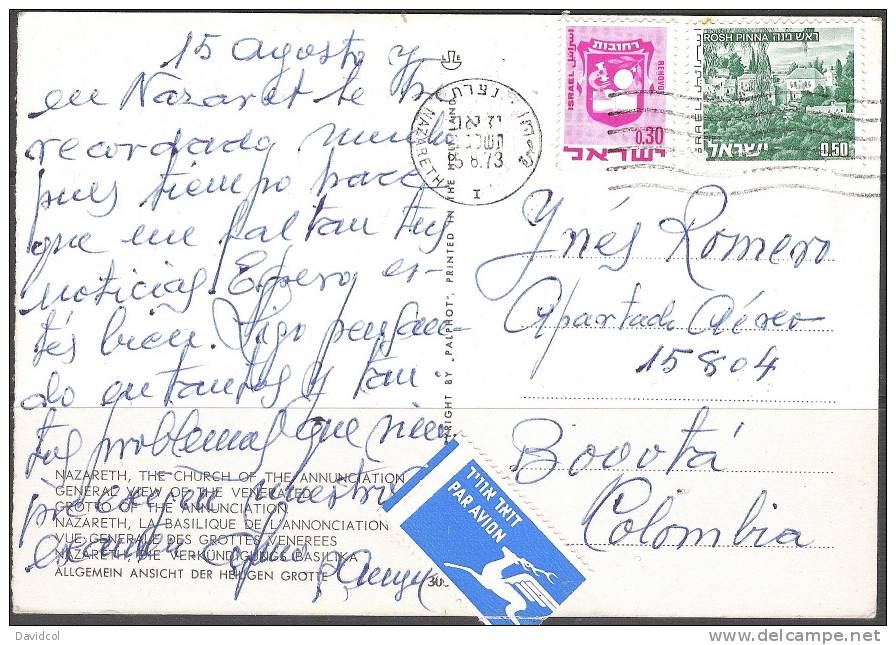 15 agosto y
en Nazaret te he
recordado mucho
pues tiempo hace
que me faltan tus
noticias. Espero es-
tés bien. Sigo pensan-
do en tantos y tan-
tos problemas que
NAZARETH, THE CHURCH OF THE ANNUNCIATION
GENERAL VIEW OF THE VENERATED
GROTTO OF THE ANNUNCIATION
NAZARETH, LA BASILIQUE DE L'ANNONCIATION
VUE GENERALE DES GROTTES VENEREES
NAZARETH, DIE VERKÜNDIGUNGS BASILIKA
ALLGEMEIN ANSICHT DER HEILIGEN GROTTE
COPYRIGHT BY „PALPHOT", PRINTED IN THE HOLY LAND
נצרת
NAZARETH
8.73
I
רחובות
REHOVOT
ISRAEL
اسرائيل
0.30
ישראל
ROSH PINNA ראש פינה
ISRAEL
اسرائيل
ישראל
0.50
Ynés Romero
Apartado Aéreo
15804
Bogotá
Colombia
דואר אויר
PAR AVION
Davidcol
www.delcampe.net